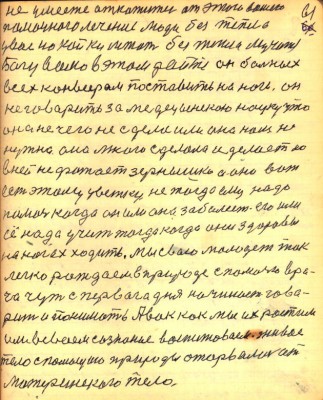 61
не умеете откажитесь от этого вашего
палачного лечения люди без тепла
у вас на койки лежат без жизни мучают
Богу в этом дайте он больных
всех конвеерам поставить на ноги. он
не говарить за медецынскою науку что
она нечего не сделала или она нам не
нужна. она много сделала и делает но
в ней не хватает зернышка а оно вот
есть этому цветку не тогда ему надо
помоч когда он или она заболеет. его или
её нада учит тогда когда они здоровы
на ногах ходить. мы своего молодет так
легко рождаем в природе с помочю вра-
ча чут с первага дня начинает гова-
рит и понимать А вок как мы их растим
им вводим сознание воспитоваем. живое
тело с помощию природы оторвали от
материнского тело.